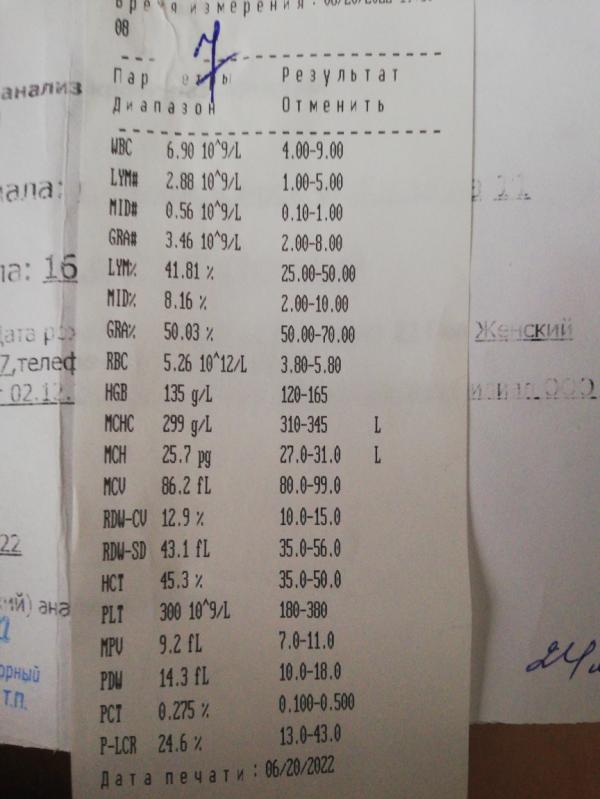 Время измерения : 06/20/2022
08
7
Параметры Результат
Диапазон Отменить
WBC 6.90 10^9/L 4.00-9.00
LYM# 2.88 10^9/L 1.00-5.00
MID# 0.56 10^9/L 0.10-1.00
GRA# 3.46 10^9/L 2.00-8.00
LYM% 41.81 % 25.00-50.00
MID% 8.16 % 2.00-10.00
GRA% 50.03 % 50.00-70.00
RBC 5.26 10^12/L 3.80-5.80
HGB 135 g/L 120-165
MCHC 299 g/L 310-345 L
MCH 25.7 pg 27.0-31.0 L
MCV 86.2 fL 80.0-99.0
RDW-CV 12.9 % 10.0-15.0
RDW-SD 43.1 fL 35.0-56.0
HCT 45.3 % 35.0-50.0
PLT 300 10^9/L 180-380
MPV 9.2 fL 7.0-11.0
PDW 14.3 fL 10.0-18.0
PCT 0.275 % 0.100-0.500
P-LCR 24.6 % 13.0-43.0
Дата печати : 06/20/2022
анализ
нала: 11
ла: 16
Дата ро Женский
7,телеф
02.12. ООО
22
ий) ана
орный
Т.П.
24